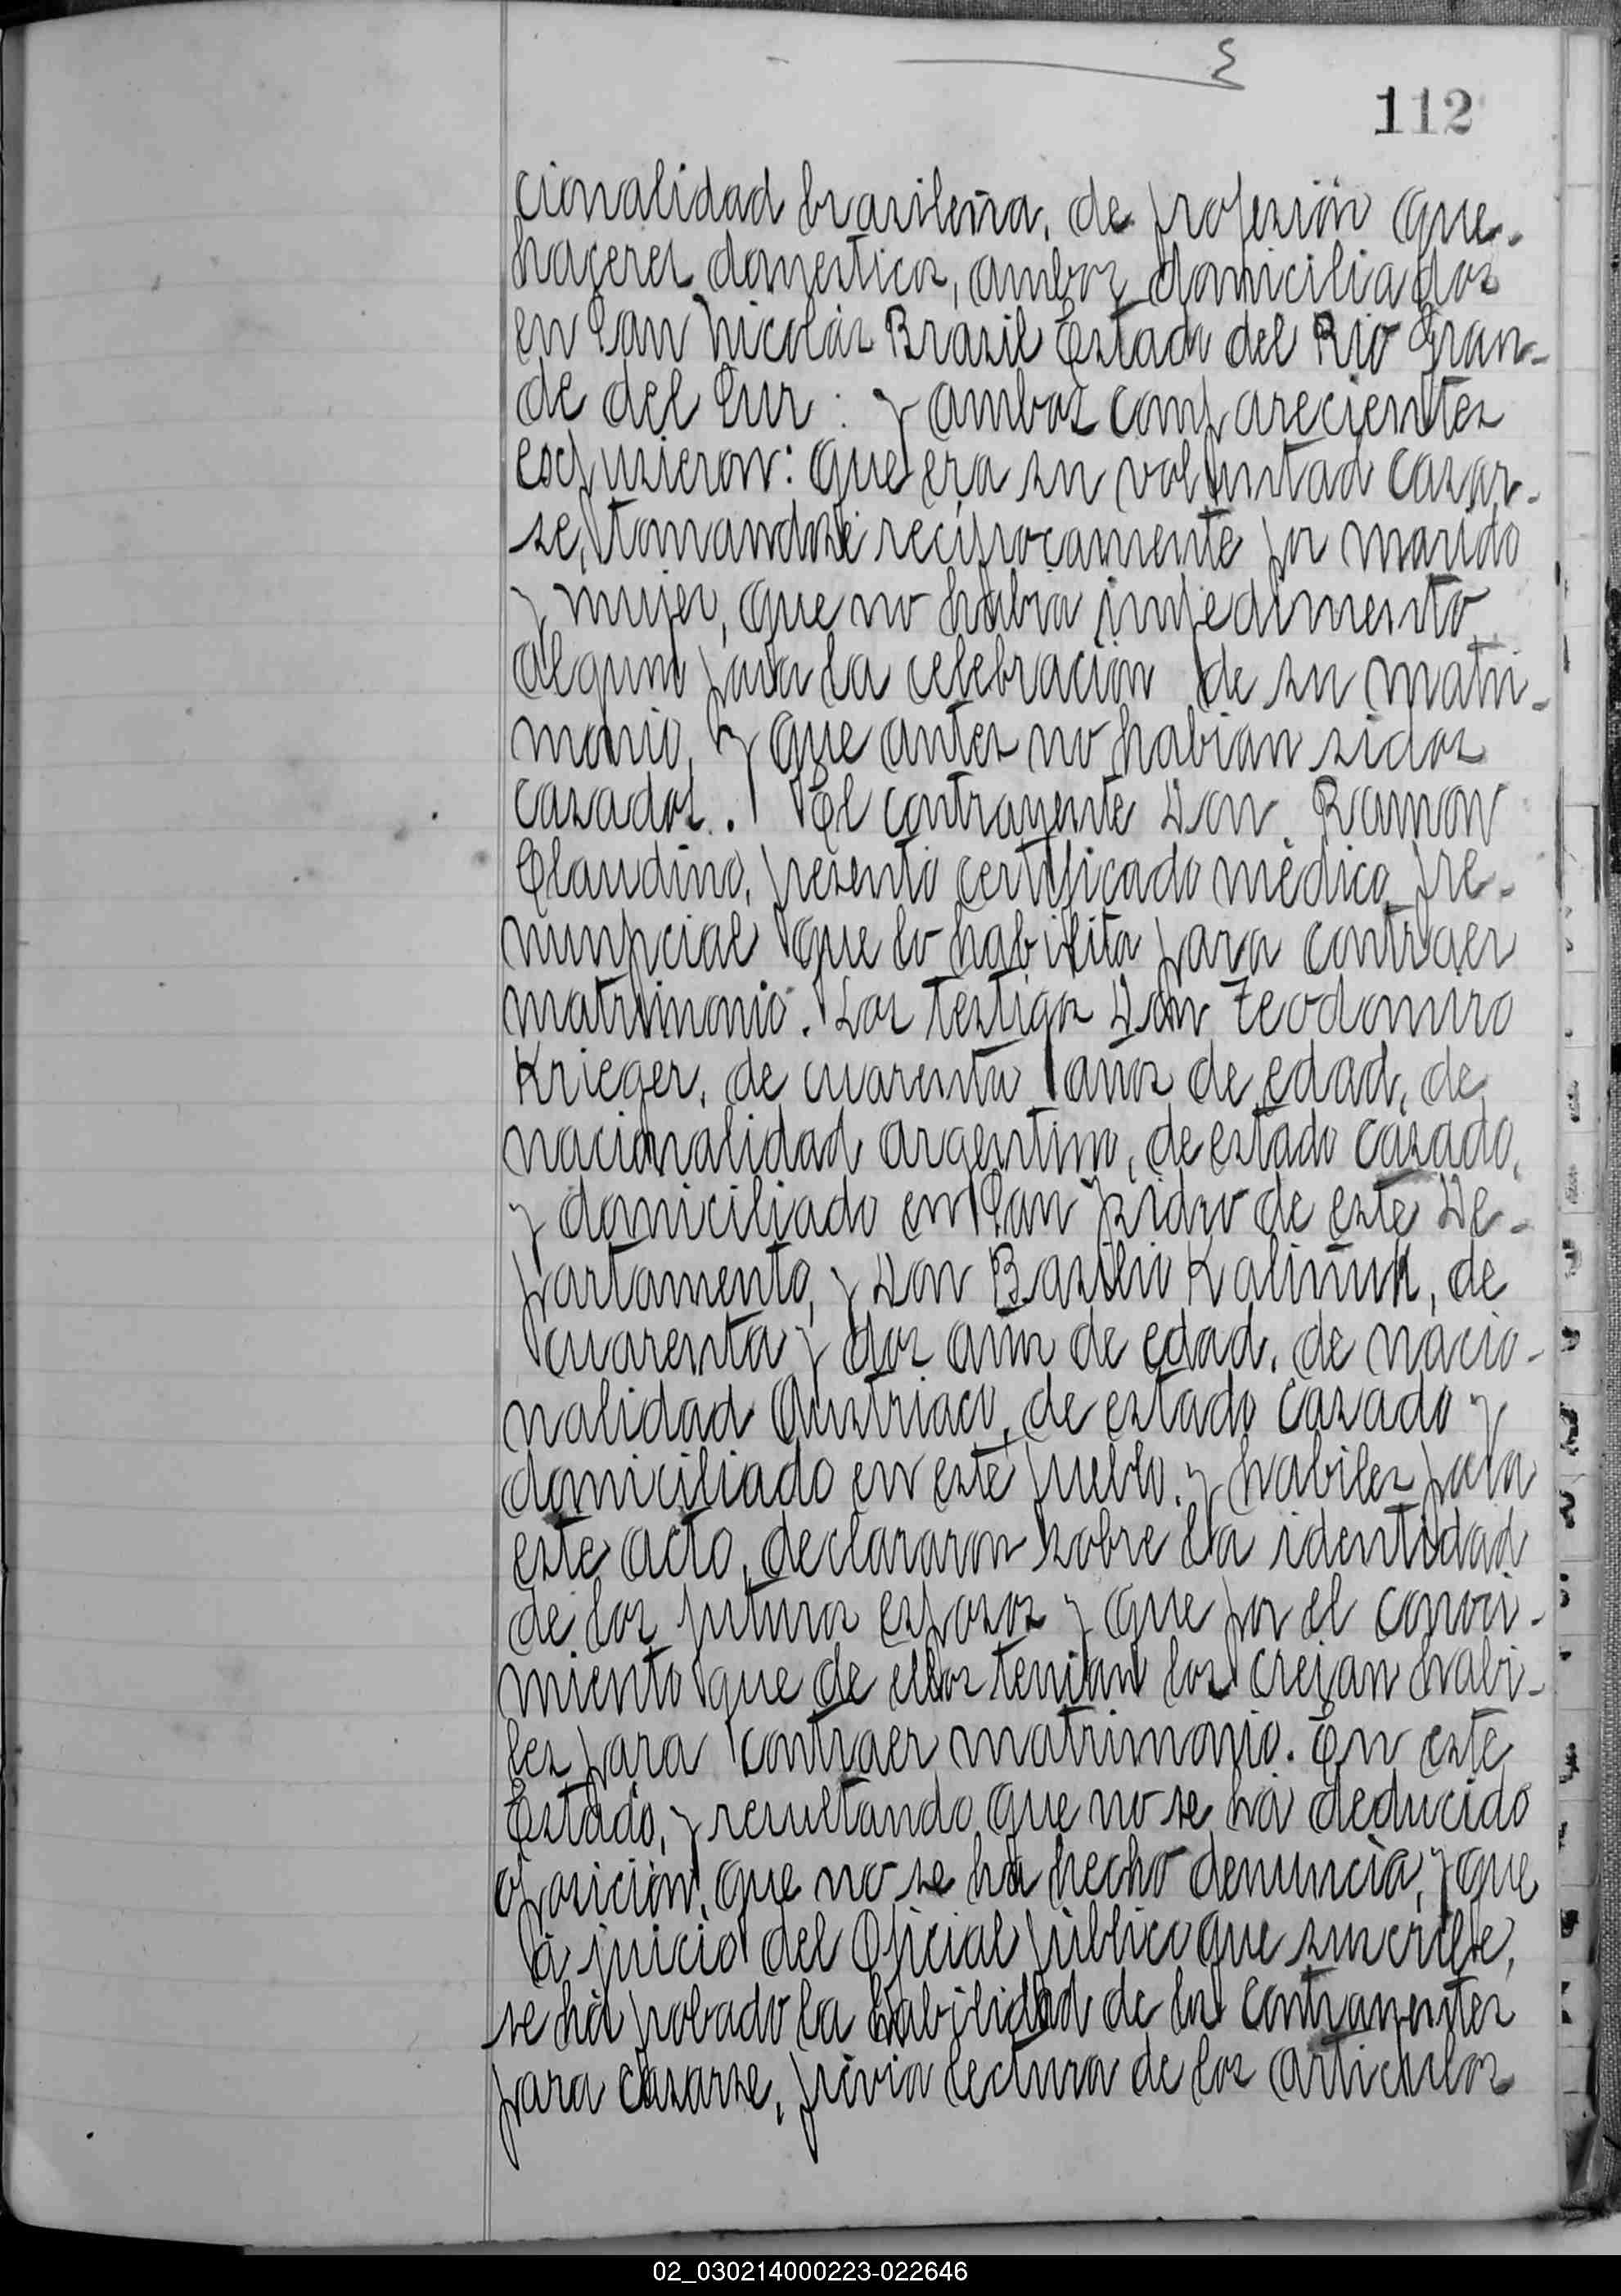 112
cionalidad brasileña, de profesión que-
haceres domesticos, ambos domiciliados
en San Nicolás Brasil Estado del Rio Gran-
de del Sur: y ambos comparecientes
expusieron: que era su voluntad casar-
se, tomandose recíprocamente por marido
y mujer, que no habia impedimento
alguno para la celebración de su matri-
monio, y que antes no habian sidos
casados. El contrayente Don Ramón
Claudino, presentó certificado médico pre-
nunpcial que lo habilita para contraer
matrimonio. Los testigos Don Teodomiro
Krieger, de cuarenta años de edad, de
nacionalidad argentino, de estado casado,
y domiciliado en San Isidro de este De-
partamento, y Don Basilio Kaliniuk, de
cuarenta y dos años de edad, de nacio-
nalidad Austriaco, de estado casado y
domiciliado en este pueblo, y habiles para
este acto, declararon sobre la identidad
de los futuros esposos y que por el conoci-
miento que de ellos tenian los creian habi-
les para contraer matrimonio. En este
Estado, y resultando que no se ha deducido
oposición, que no se ha hecho denuncia, y que
á juicio del Oficial Público que suscribe,
se há probado la habilidad de los contrayentes
para casarse, prévia lectura de los articulos
02_030214000223-022646